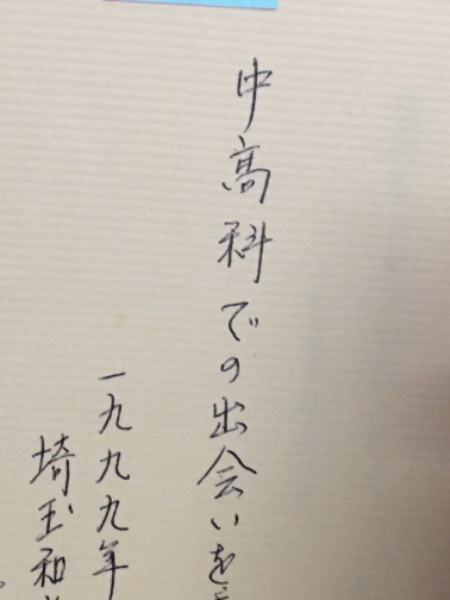 中高科での出会いを
一九九九年
埼玉和